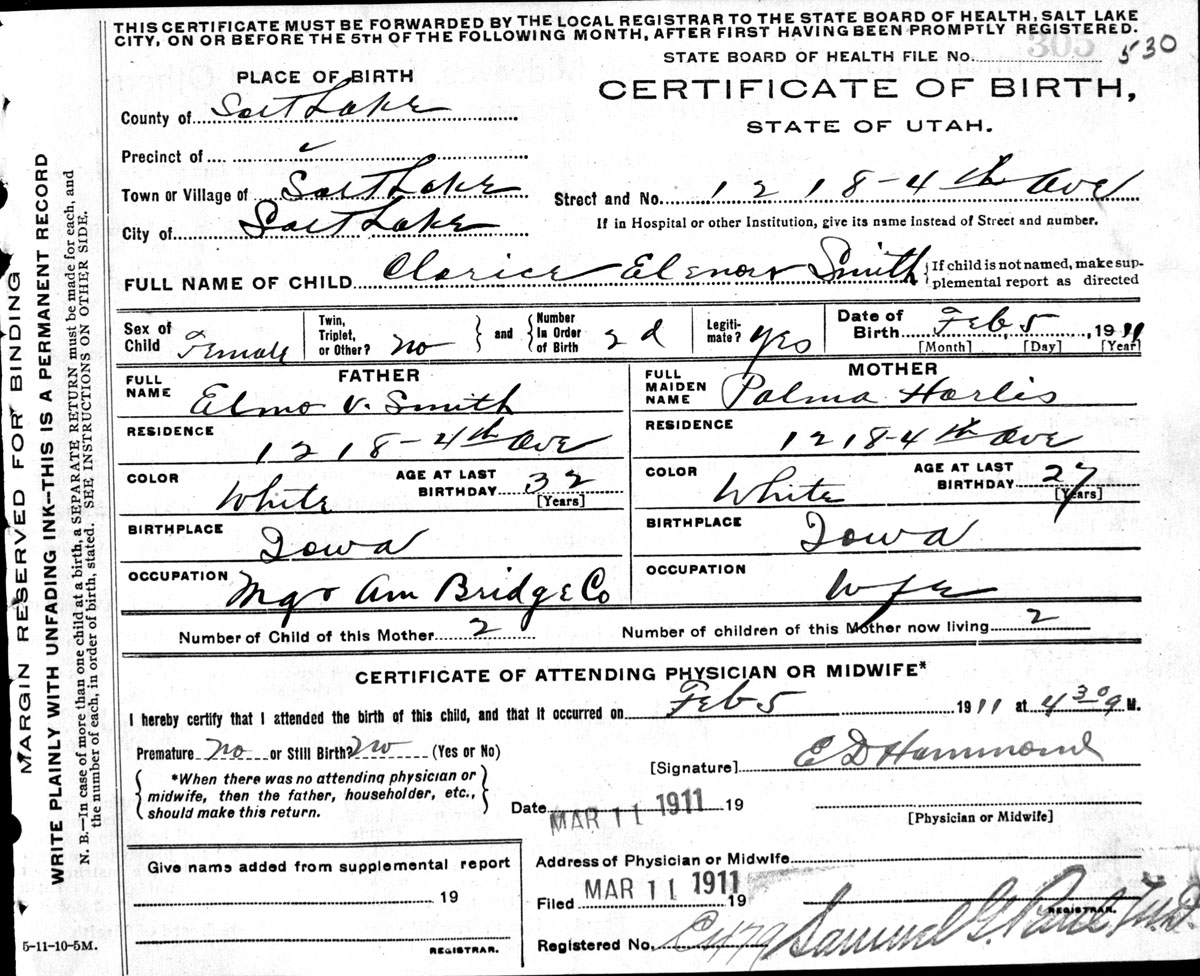 THIS CERTIFICATE MUST BE FORWARDED BY THE LOCAL REGISTRAR TO THE STATE BOARD OF HEALTH, SALT LAKE
CITY, ON OR BEFORE THE 5TH OF THE FOLLOWING MONTH, AFTER FIRST HAVING BEEN PROMPTLY REGISTERED.
STATE BOARD OF HEALTH FILE No. 530
PLACE OF BIRTH
CERTIFICATE OF BIRTH,
STATE OF UTAH.
County of Salt Lake
Precinct of
Town or Village of Salt Lake
Street and No. 1218-4th Ave
City of Salt Lake
If in Hospital or other Institution, give its name instead of Street and number.
FULL NAME OF CHILD Clarice Elenor Smith
If child is not named, make sup-
plemental report as directed
Sex of Child Female
Twin, Triplet, or Other? no
and Number In Order of Birth 2d
Legiti-mate? yes
Date of Birth Feb 5, 1911
[Month] [Day] [Year]
FATHER
FULL NAME Elmo V. Smith
RESIDENCE 1218-4th Ave
COLOR White
AGE AT LAST BIRTHDAY 32
[Years]
BIRTHPLACE Iowa
OCCUPATION Mgr Am Bridge Co
MOTHER
FULL MAIDEN NAME Palma Harlis
RESIDENCE 1218-4th Ave
COLOR White
AGE AT LAST BIRTHDAY 27
[Years]
BIRTHPLACE Iowa
OCCUPATION wfe
Number of Child of this Mother 2
Number of children of this Mother now living 2
CERTIFICATE OF ATTENDING PHYSICIAN OR MIDWIFE*
I hereby certify that I attended the birth of this child, and that it occurred on Feb 5 1911 at 4 30 M.
Premature no or Still Birth? no (Yes or No)
[Signature] E D Hammond
*When there was no attending physician or
midwife, then the father, householder, etc.,
should make this return.
Date MAR 11 1911 19
[Physician or Midwife]
Give name added from supplemental report
19
REGISTRAR.
Address of Physician or Midwife
Filed MAR 11 1911 19
REGISTRAR.
Registered No. Samuel G. Paul M.D.
5-11-10-5M.
MARGIN RESERVED FOR BINDING
WRITE PLAINLY WITH UNFADING INK—THIS IS A PERMANENT RECORD
N. B.—In case of more than one child at a birth, a SEPARATE RETURN must be made for each, and
the number of each, in order of birth, stated. SEE INSTRUCTIONS ON OTHER SIDE.